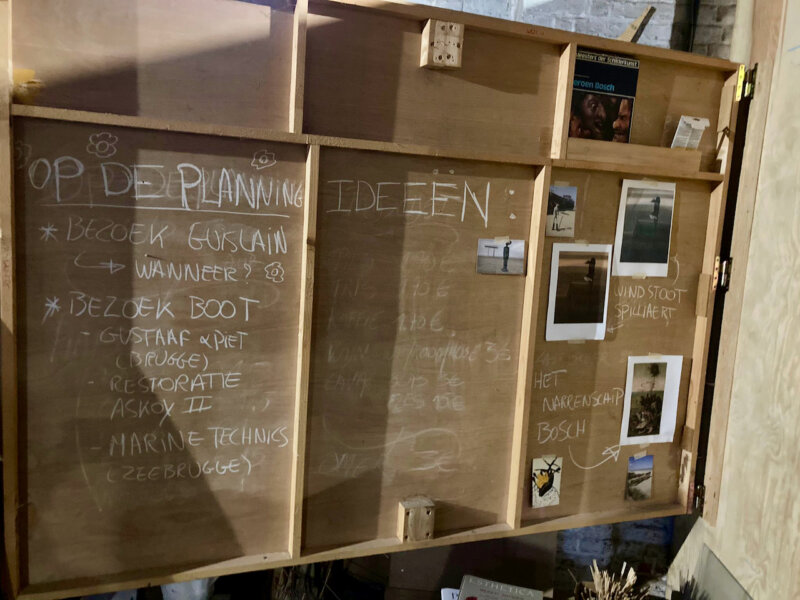 OP DE PLANNING
* BEZOEK GUISLAIN
WANNEER?
* BEZOEK BOOT
- GUSTAAF & PIET
(BRUGGE)
- RESTORATIE
ASKOY II
- MARINE TECHNICS
(ZEEBRUGGE)
IDEEEN
Meesters der Schilderkunst
Jeroen Bosch
WINDSTOOT
SPILLIAERT
HET
NARRENSCHIP
BOSCH
ESTHETICA